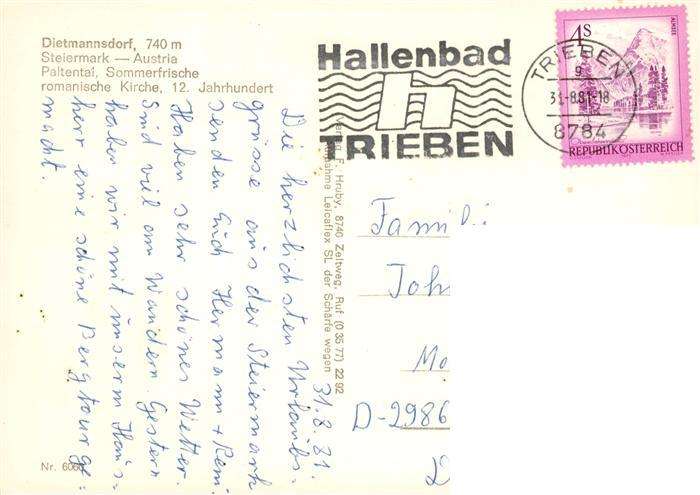 Dietmannsdorf, 740 m
Steiermark — Austria
Paltental, Sommerfrische
romanische Kirche, 12. Jahrhundert
Hallenbad
h
TRIEBEN
TRIEBEN
9
31.-8.81-18
8784
4S
ALMSEE
REPUBLIK ÖSTERREICH
31.8.81.
Die herzlichsten Urlaubs-
grüsse aus der Steiermark
senden Euch Hermann + Reni
Haben sehr schönes Wetter.
Sind viel am Wandern. Gestern
haben wir mit unserm Haus-
herr eine schöne Bergtour ge-
macht.
F. Hruby, 8740 Zeltweg, Ruf (0 35 77) 22 92
Leicaflex SL der Schärfe wegen
Famili
Joh
Mo
D-2986
Nr. 606